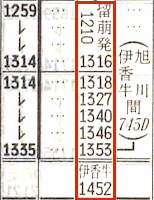 1259
↓
↓
1314
1314
↓
↓
↓
1335
…
…
…
…
…
…
…
留萌発
1210
1316
1318
1327
1340
1346
1353
伊香牛
1452
旭川
伊香牛
間
745D